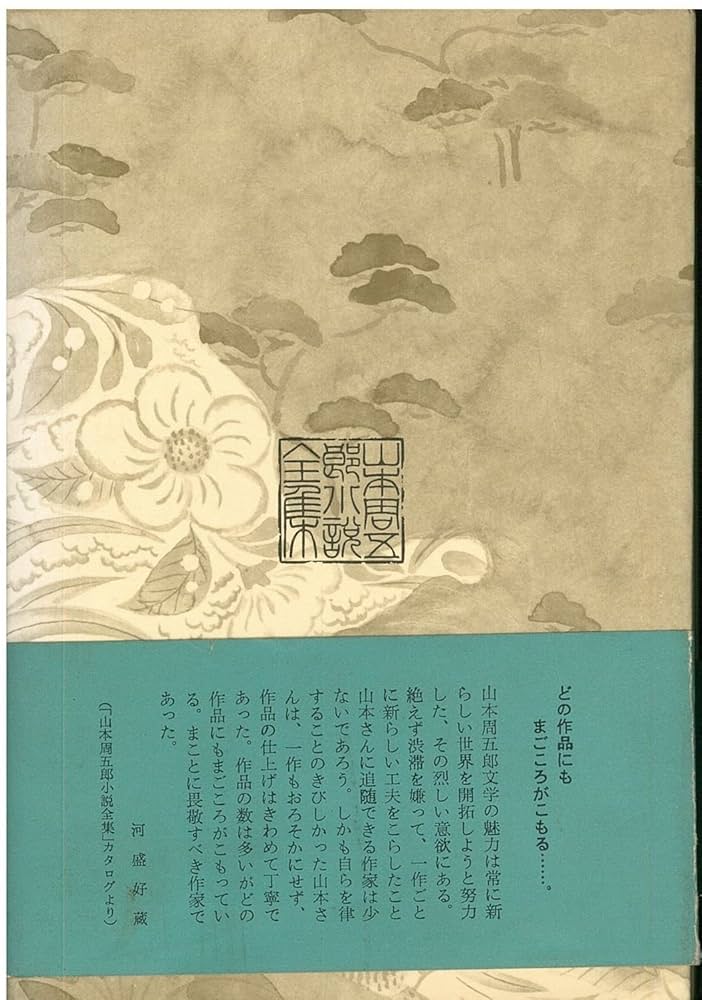 山本周五
郎小説
全集
どの作品にも
まごころがこもる……。
山本周五郎文学の魅力は常に新
らしい世界を開拓しようと努力
した、その烈しい意欲にある。
絶えず渋滞を嫌って、一作ごと
に新らしい工夫をこらしたこと
山本さんに追随できる作家は少
ないであろう。しかも自らを律
することのきびしかった山本さ
んは、一作もおろそかにせず、
作品の仕上げはきわめて丁寧で
あった。作品の数は多いがどの
作品にもまごころがこもってい
る。まことに畏敬すべき作家で
あった。
河盛好蔵
(「山本周五郎小説全集」カタログより)